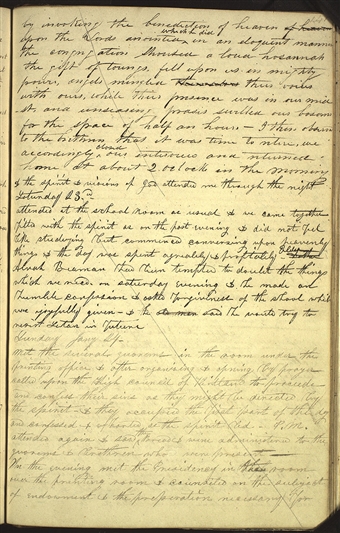 by invoking the benediction of heaven of heaven
upon the Lords anointed, which he did in an eloquent manner
the congregation shouted a loud hosannah
the gift of toungs, fell upon us in mighty
power, angels mingled themselves their voices
with ours, while their presence was in our mid
st, and unseasing prases swelled our bosoms
for the space of half an hour,— I then observed
to the brethren that it was time to retire, we
accordingly closed our interview and returned
home at about 2. oclock in the morning
& the spirit & visions of God attended me through the night
Saturday 23
attended at the school room as usual & we came together
filled with the spirit as on the past evening & did not feel
like studdying but commenced conversing upon heavenly
things & the day was spent agreably & profitably— Elder
Alvah Beaman had been tempted to doubt the things
which we recd. on saturday evening & he made an
humble confession & asked forgivness of the school whch
was joyfully given— & he said he would try to
resist Satan in future
Sunday Jany 24
Met the several quorems in the room under the
Printing office & after organizing & op[e]ning by prayer
called upon the High council of Kirtland to proceede
and confess their sins as they might be directed by
the spirit— & they occupied the first part of the day
and confessed & exhorted as the spirit led.— P.M.
attended again & saw Bread & wine administered to the
quorems & brethren who were present—
In the evening met the Presidency in the room
over the printing room & counseled on the subject
of endowment & the preperation necessary for